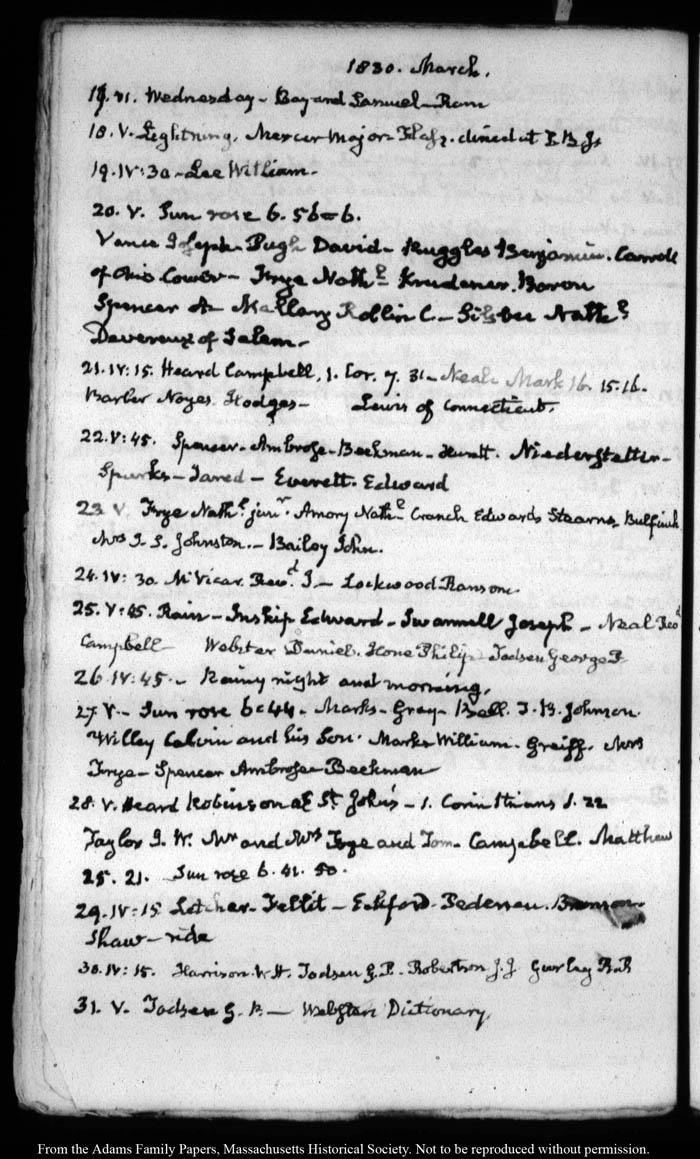 1830. March.
17. VI. Wednesday - Bay and Samuel - Ram
18. V. Lightning. Mercer Major - dined at T. B. J.
19. IV:30 - Lee William -
20. V. Sun rose 6. 5 6.
Vance Joseph - Pugh David - Ruggles Benjamin. Carroll
of Ohio - Frye Nathl. Krudener. Baron
Spencer A - Mallary Rollin C - Silsbee Nathl.
Devereux of Salem -
21. IV:15. Heard Campbell, 1. Cor. 7. 31 - Neale Mark 16. 15.16.
Barber Noyes. Hodges - Lewis of Connecticut.
22. V:45. Spencer - Ambrose - Beekman - Niederstetter -
Sparks - Jared - Everett. Edward
23 V. Frye Nathl. junr. Amory Nathl. Cranch Edward Stearns - Bulfinch
Mrs J. S. Johnston. - Bailey John.
24. IV:30. McVicar Revd. J - Lockwood Ransom
25. V:45. Rain - Inskip Edward - Swannell Joseph - Neal
Campbell - Webster Daniel. Hone Philip - Todsen George P
26. IV:45. - Rainy night and morning.
27. V - Sun rose 6:44 - Marks - Gray - Bell. J. B. Johnson.
Willey Calvin and his Son. Marks William - Greiff. Mrs
Frye - Spencer Ambrose - Beekman
28. V. Heard Robinson at St. John's - 1. Corinthians 1. 22
Taylor J. W. Mr and Mrs Frye and Tom - Campbell. Matthew
25. 21. Sun rose 6. 41. 50.
29. IV:15 Letcher - - Eckford. Pedersen.
Shaw - ride
30. IV:15. Harrison W. H. Todsen G. P. - Robertson J. J Gurley R. R
31. V. Todsen G. P. - Webster Dictionary
From the Adams Family Papers, Massachusetts Historical Society. Not to be reproduced without permission.